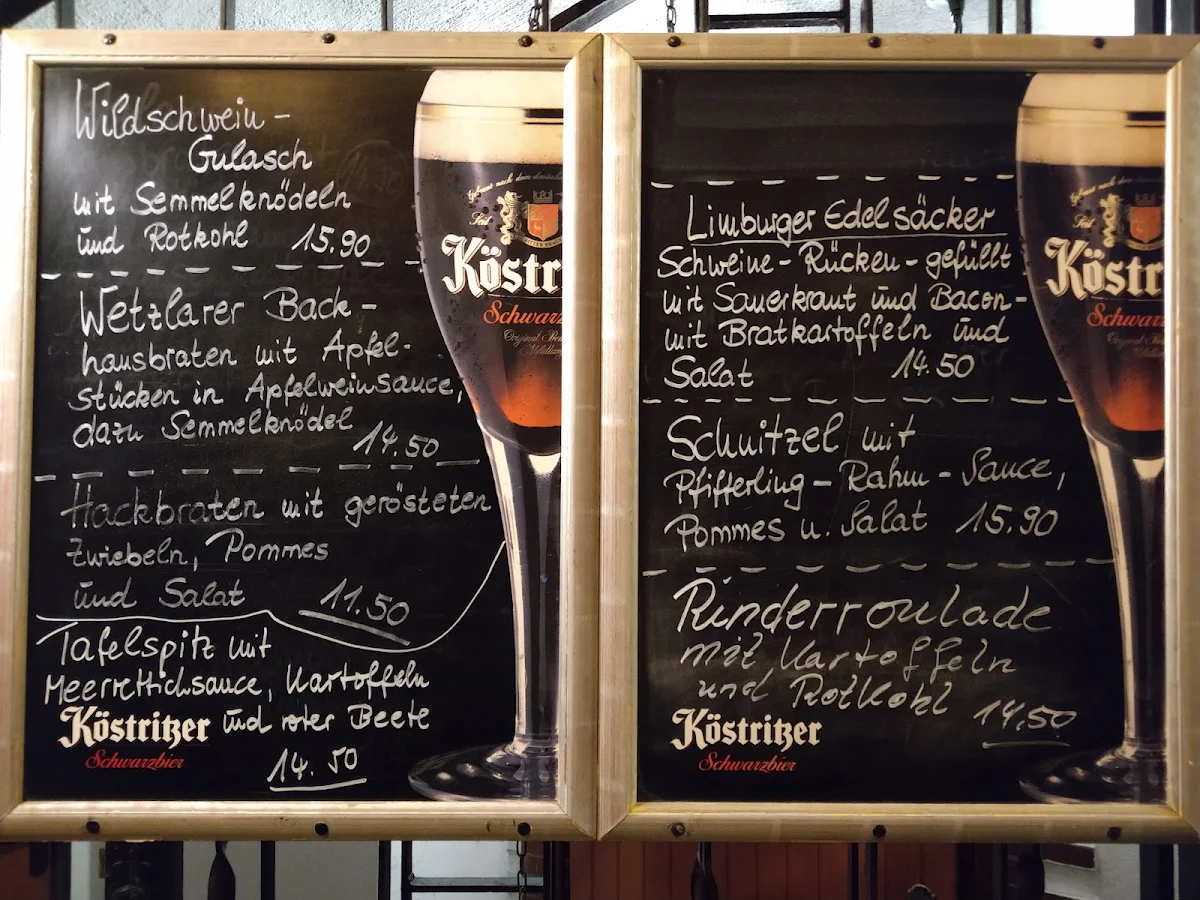 Wildschwein-
Gulasch
mit Semmelknödeln
und Rotkohl 15.90
Wetzlarer Back-
hausbraten mit Apfel-
stücken in Apfelweinsauce,
dazu Semmelknödel
14.50
Hackbraten mit gerösteten
Zwiebeln, Pommes
und Salat 11.50
Tafelspitz mit
Meerrettichsauce, Kartoffeln
und roter Beete
14.50
Köstritzer
Schwarzbier
Seit
Köstr
Schwarz
Limburger Edelsäcker
Schweine-Rücken-gefüllt
mit Sauerkraut und Bacon-
mit Bratkartoffeln und
Salat 14.50
Schnitzel mit
Pfifferling-Rahm-Sauce,
Pommes u. Salat 15.90
Rinderroulade
mit Kartoffeln
und Rotkohl
14.50
Köstritzer
Schwarzbier
Seit
Köstr
Schwarz